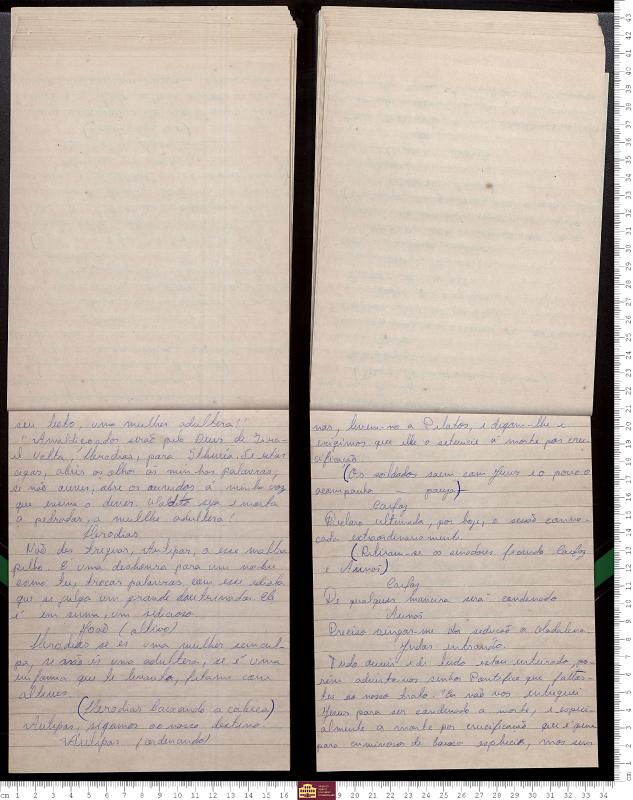 seu leito, uma mulher adultera!"
"Amaldiçoados serão pelo Deus de Isra-
el. Volta, Herodias, para Se estas
cegas, abris os olhos ás minhas palavras,
se não ouves, abre os ouvidos á minha voz
que ensina o dever. seja e morta
a pedradas, a mulher adultera!
Herodias
Não des treguas, Antipas, a esse maltra-
pilho. E uma deshonra para um nobre
como tu, trocar palavras com esse idiota
que se julga um grande doutrinador. Ele
é em suma, um sedicioso.
João (altivo)
Herodias se és uma mulher sem cul-
pa, si não és uma adultera, se é uma
infamia que te levanto, fala-me com
altivez.
(Herodias baixando a cabeça)
Antipas, sigamos ao nosso destino.
Antipas (ordenando)
nas, levem-no a Pilatos, e digam-lhe
exigimos que elle o sentencie á morte por cru-
cificação.
(Os soldados saem com Jesus e o povo o
acompanha — pausa)
Caifaz
Declaro ultimada, por hoje, a sessão convo-
cada extraordinariamente.
(Retiram-se os senadores ficando Caifaz
e Annás)
Caifaz
De qualquer maneira será condenado
Annás
Preciso vingar-me da sedução a Madalena.
Judas entrando.
Tudo ouvi e de tudo estou inteirado, po-
rém advirto-vos senhor Pontifice que faltas-
tes ao nosso trato. Eu não vos entreguei
Jesus para ser condenado a morte, e especi-
almente a morte por crucificação que é
para criminosos de baraço mas sim